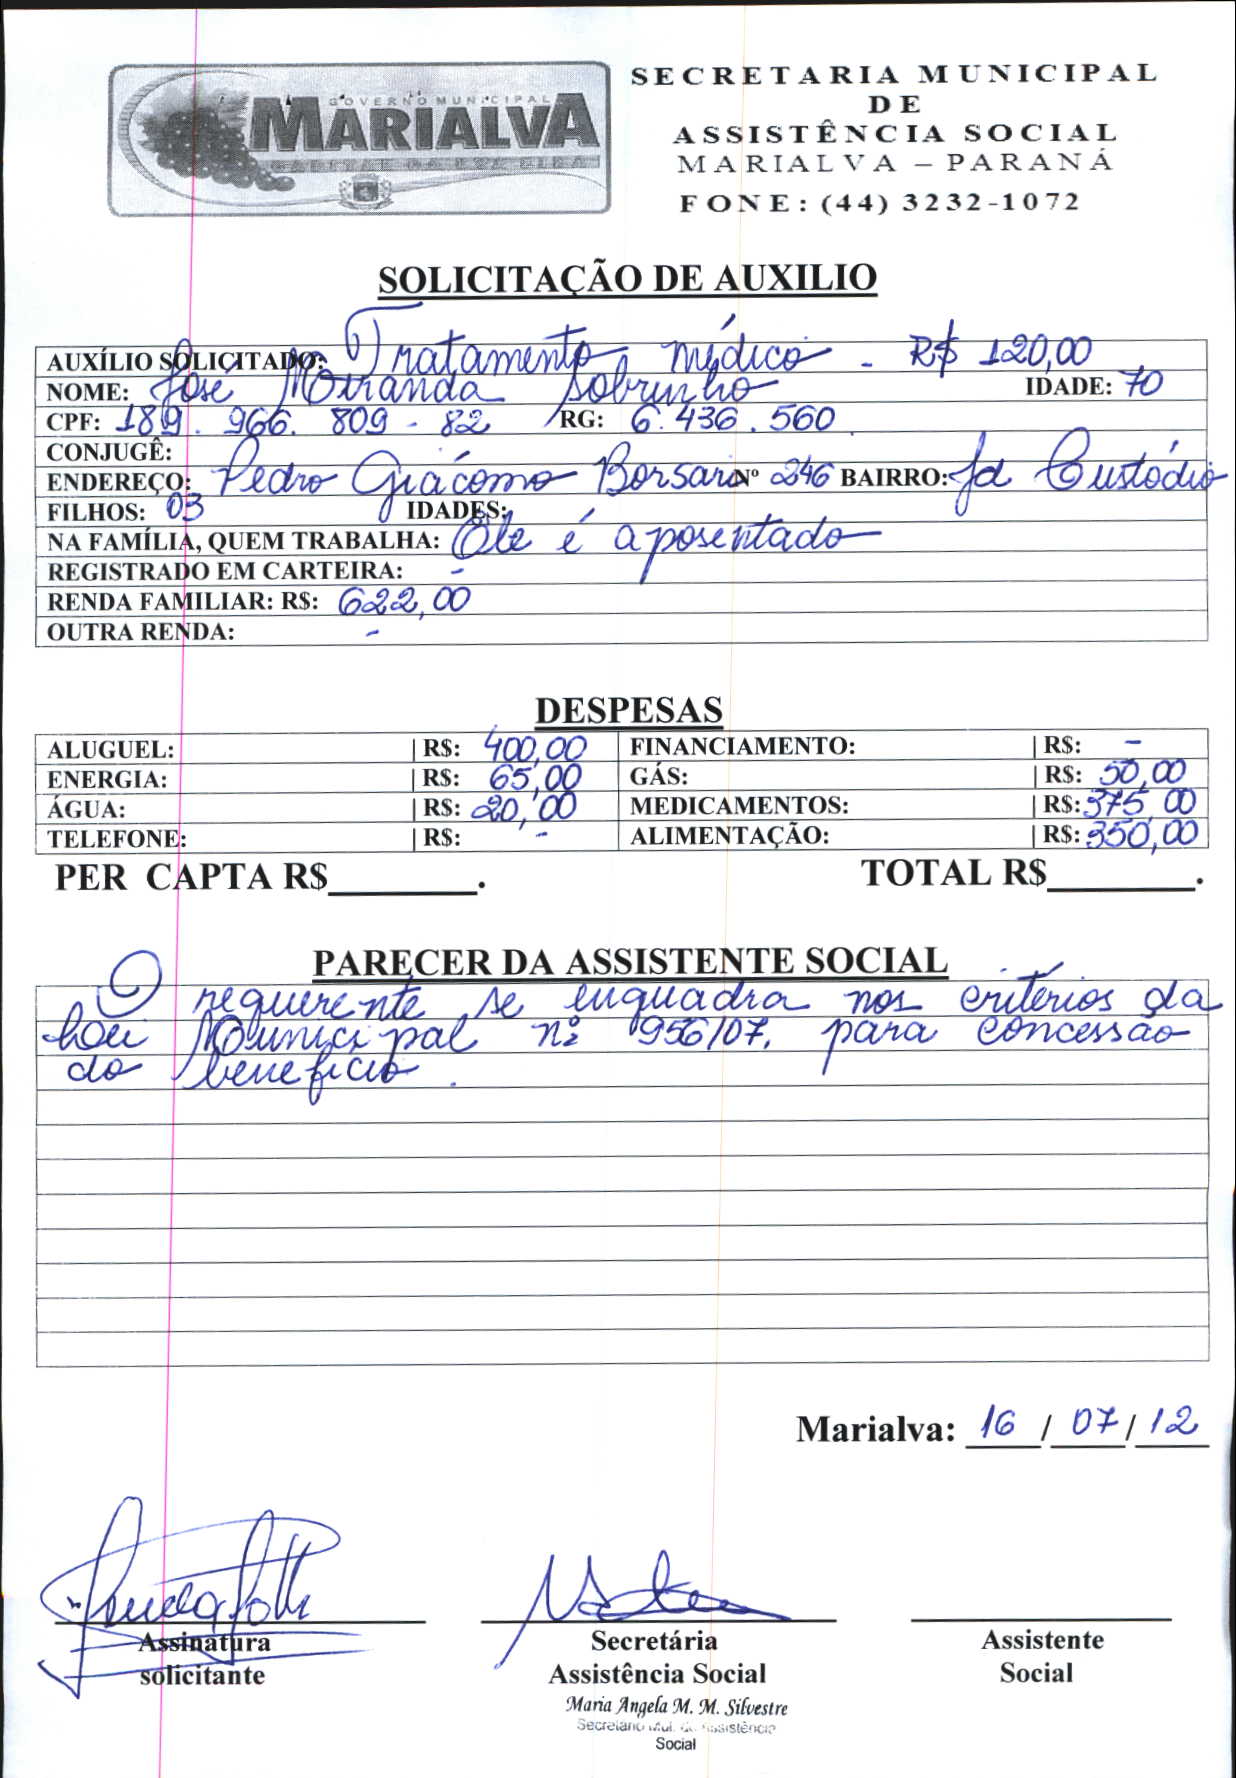 GOVERNO MUNICIPAL
MARIALVA
SECRETARIA MUNICIPAL
DE
ASSISTÊNCIA SOCIAL
MARIALVA – PARANÁ
FONE: (44) 3232-1072
SOLICITAÇÃO DE AUXILIO
AUXÍLIO SOLICITADO: Tratamento médico - R$ 120,00
NOME: José Miranda Sobrinho IDADE: 70
CPF: 189.966.809-82 RG: 6.436.560
CONJUGÊ:
ENDEREÇO: Pedro Giácomo Borsari Nº 246 BAIRRO: Jd Custódio
FILHOS: 03 IDADES:
NA FAMÍLIA, QUEM TRABALHA: Ele é aposentado
REGISTRADO EM CARTEIRA: -
RENDA FAMILIAR: R$: 622,00
OUTRA RENDA: -
DESPESAS
ALUGUEL: | R$: 400,00 FINANCIAMENTO: | R$: -
ENERGIA: | R$: 65,00 GÁS: | R$: 50,00
ÁGUA: | R$: 20,00 MEDICAMENTOS: | R$: 375,00
TELEFONE: | R$: - ALIMENTAÇÃO: | R$: 350,00
PER CAPTA R$________. TOTAL R$________.
PARECER DA ASSISTENTE SOCIAL
O requerente se enquadra nos critérios da
Lei Municipal nº 956/07, para concessão
do benefício.
Marialva: 16 / 07 / 12
Assinatura
solicitante
Secretária
Assistência Social
Maria Angela M. M. Silvestre
Secretário Mul. de Assistência
Social
Assistente
Social